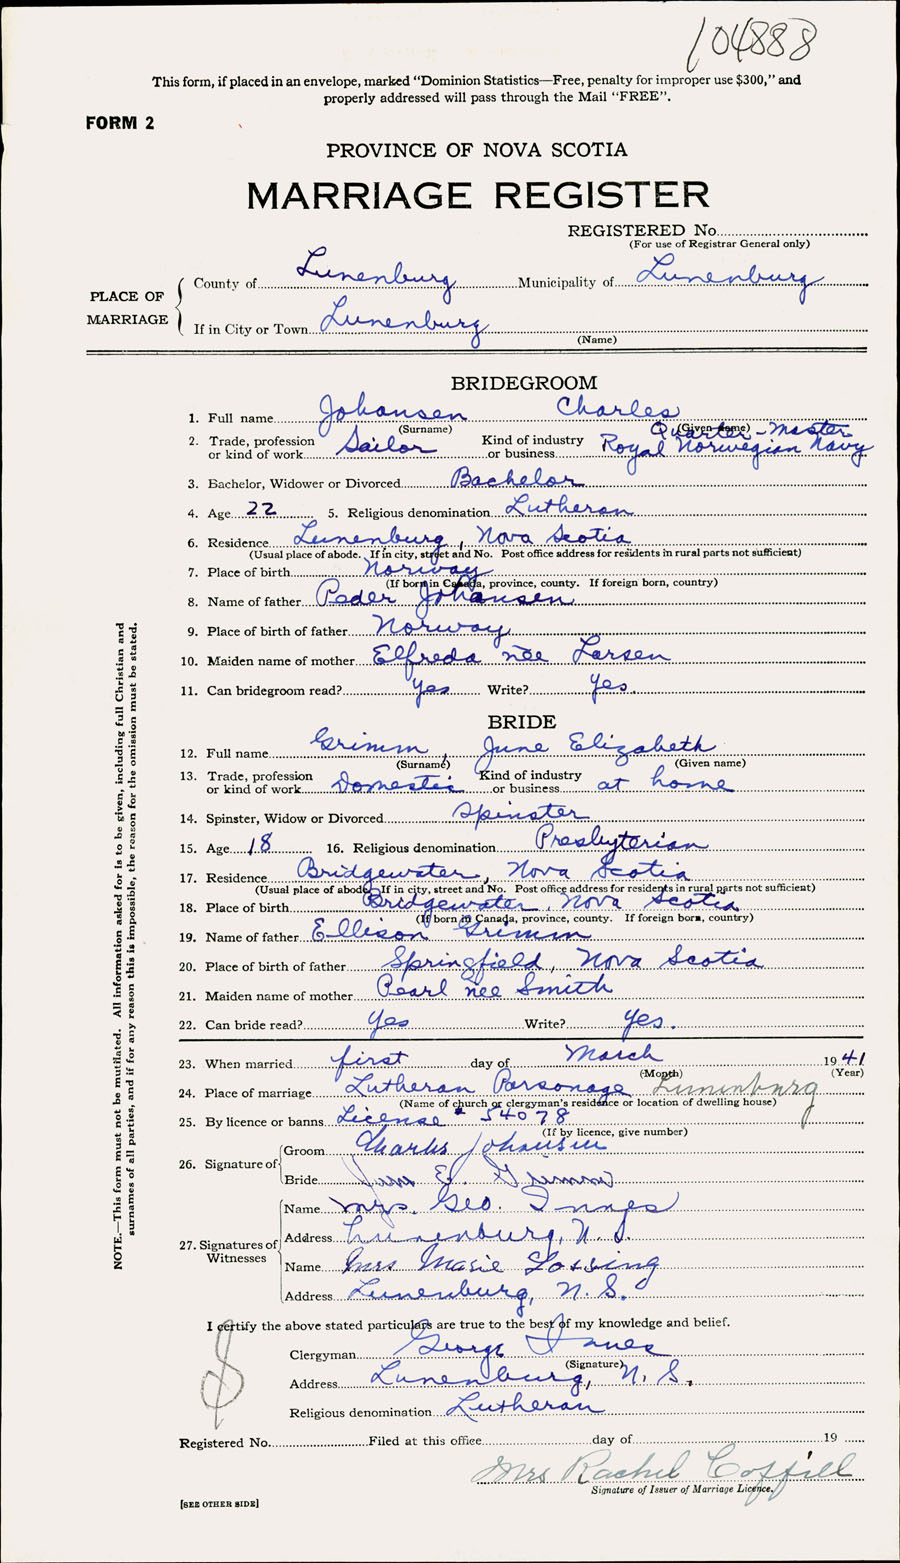 104888
This form, if placed in an envelope, marked "Dominion Statistics—Free, penalty for improper use $300," and
properly addressed will pass through the Mail "FREE".
FORM 2
PROVINCE OF NOVA SCOTIA
MARRIAGE REGISTER
REGISTERED No.
(For use of Registrar General only)
PLACE OF MARRIAGE
County of Lunenburg Municipality of Lunenburg
If in City or Town Lunenburg
(Name)
BRIDEGROOM
1. Full name Johansen Charles
(Surname) (Given name)
2. Trade, profession or kind of work Sailor Kind of industry or business Quarter-Master Royal Norwegian Navy
3. Bachelor, Widower or Divorced Bachelor
4. Age 22 5. Religious denomination Lutheran
6. Residence Lunenburg, Nova Scotia
(Usual place of abode. If in city, street and No. Post office address for residents in rural parts not sufficient)
7. Place of birth Norway
(If born in Canada, province, county. If foreign born, country)
8. Name of father Peder Johansen
9. Place of birth of father Norway
10. Maiden name of mother Elfreda née Larsen
11. Can bridegroom read? yes Write? yes.
BRIDE
12. Full name Grimm, June Elizabeth
(Surname) (Given name)
13. Trade, profession or kind of work Domestic Kind of industry or business at home
14. Spinster, Widow or Divorced Spinster
15. Age 18 16. Religious denomination Presbyterian
17. Residence Bridgewater, Nova Scotia
(Usual place of abode. If in city, street and No. Post office address for residents in rural parts not sufficient)
18. Place of birth Bridgewater, Nova Scotia
(If born in Canada, province, county. If foreign born, country)
19. Name of father Ellison Grimm
20. Place of birth of father Springfield, Nova Scotia
21. Maiden name of mother Pearl née Smith
22. Can bride read? yes Write? yes.
23. When married first day of March 1941
(Month) (Year)
24. Place of marriage Lutheran Parsonage Lunenburg
(Name of church or clergyman's residence or location of dwelling house)
25. By licence or banns License # 54078
(If by licence, give number)
26. Signature of
Groom Charles Johansen
Bride June E. Grimm
27. Signatures of Witnesses
Name Mrs. Geo. Innes
Address Lunenburg, N.S.
Name Mrs Marie
Address Lunenburg, N.S.
I certify the above stated particulars are true to the best of my knowledge and belief.
Clergyman George Innes
(Signature)
Address Lunenburg, N.S.
Religious denomination Lutheran
$
Registered No. Filed at this office day of 19
Mrs Rachel Coffill
Signature of Issuer of Marriage Licence.
[SEE OTHER SIDE]
NOTE.—This form must not be mutilated. All information asked for is to be given, including full Christian and
surnames of all parties, and if for any reason this is impossible, the reason for the omission must be stated.